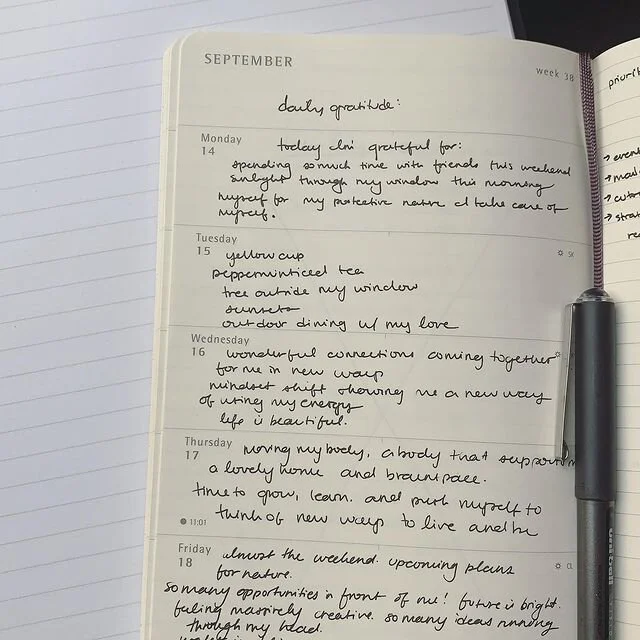 SEPTEMBER
week 38
daily gratitude:
Monday
14
today I'm grateful for:
spending so much time with friends this weekend
sunlight through my window this morning
myself for my protective nature I take care of
myself.
Tuesday
15
SK
yellow cup
peppermint iced tea
tree outside my window
sunsets
outdoor dining w/ my love
Wednesday
16
wonderful connections coming together
for me in new ways
mindset shift showing me a new way
of using my energy
life is beautiful.
Thursday
17
moving my body, a body that supports m
a lovely home and brainspace.
time to grow, learn, and push myself to
think of new ways to live and be
11:01
Friday
18
CL
almost the weekend. upcoming plans
for nature.
so many opportunities in front of me! future is bright.
feeling massively creative. so many ideas running
through my head.
priorit
→ event
→ mail
→
→ strat
re
uni-ball